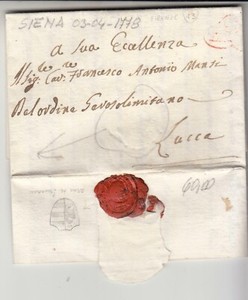 SIENA 03-04-1773
a Sua Eccellenza
Sig. Cav. Francesco Antonio Mansi
Del ordine Gerosolimitano
Lucca
60,00